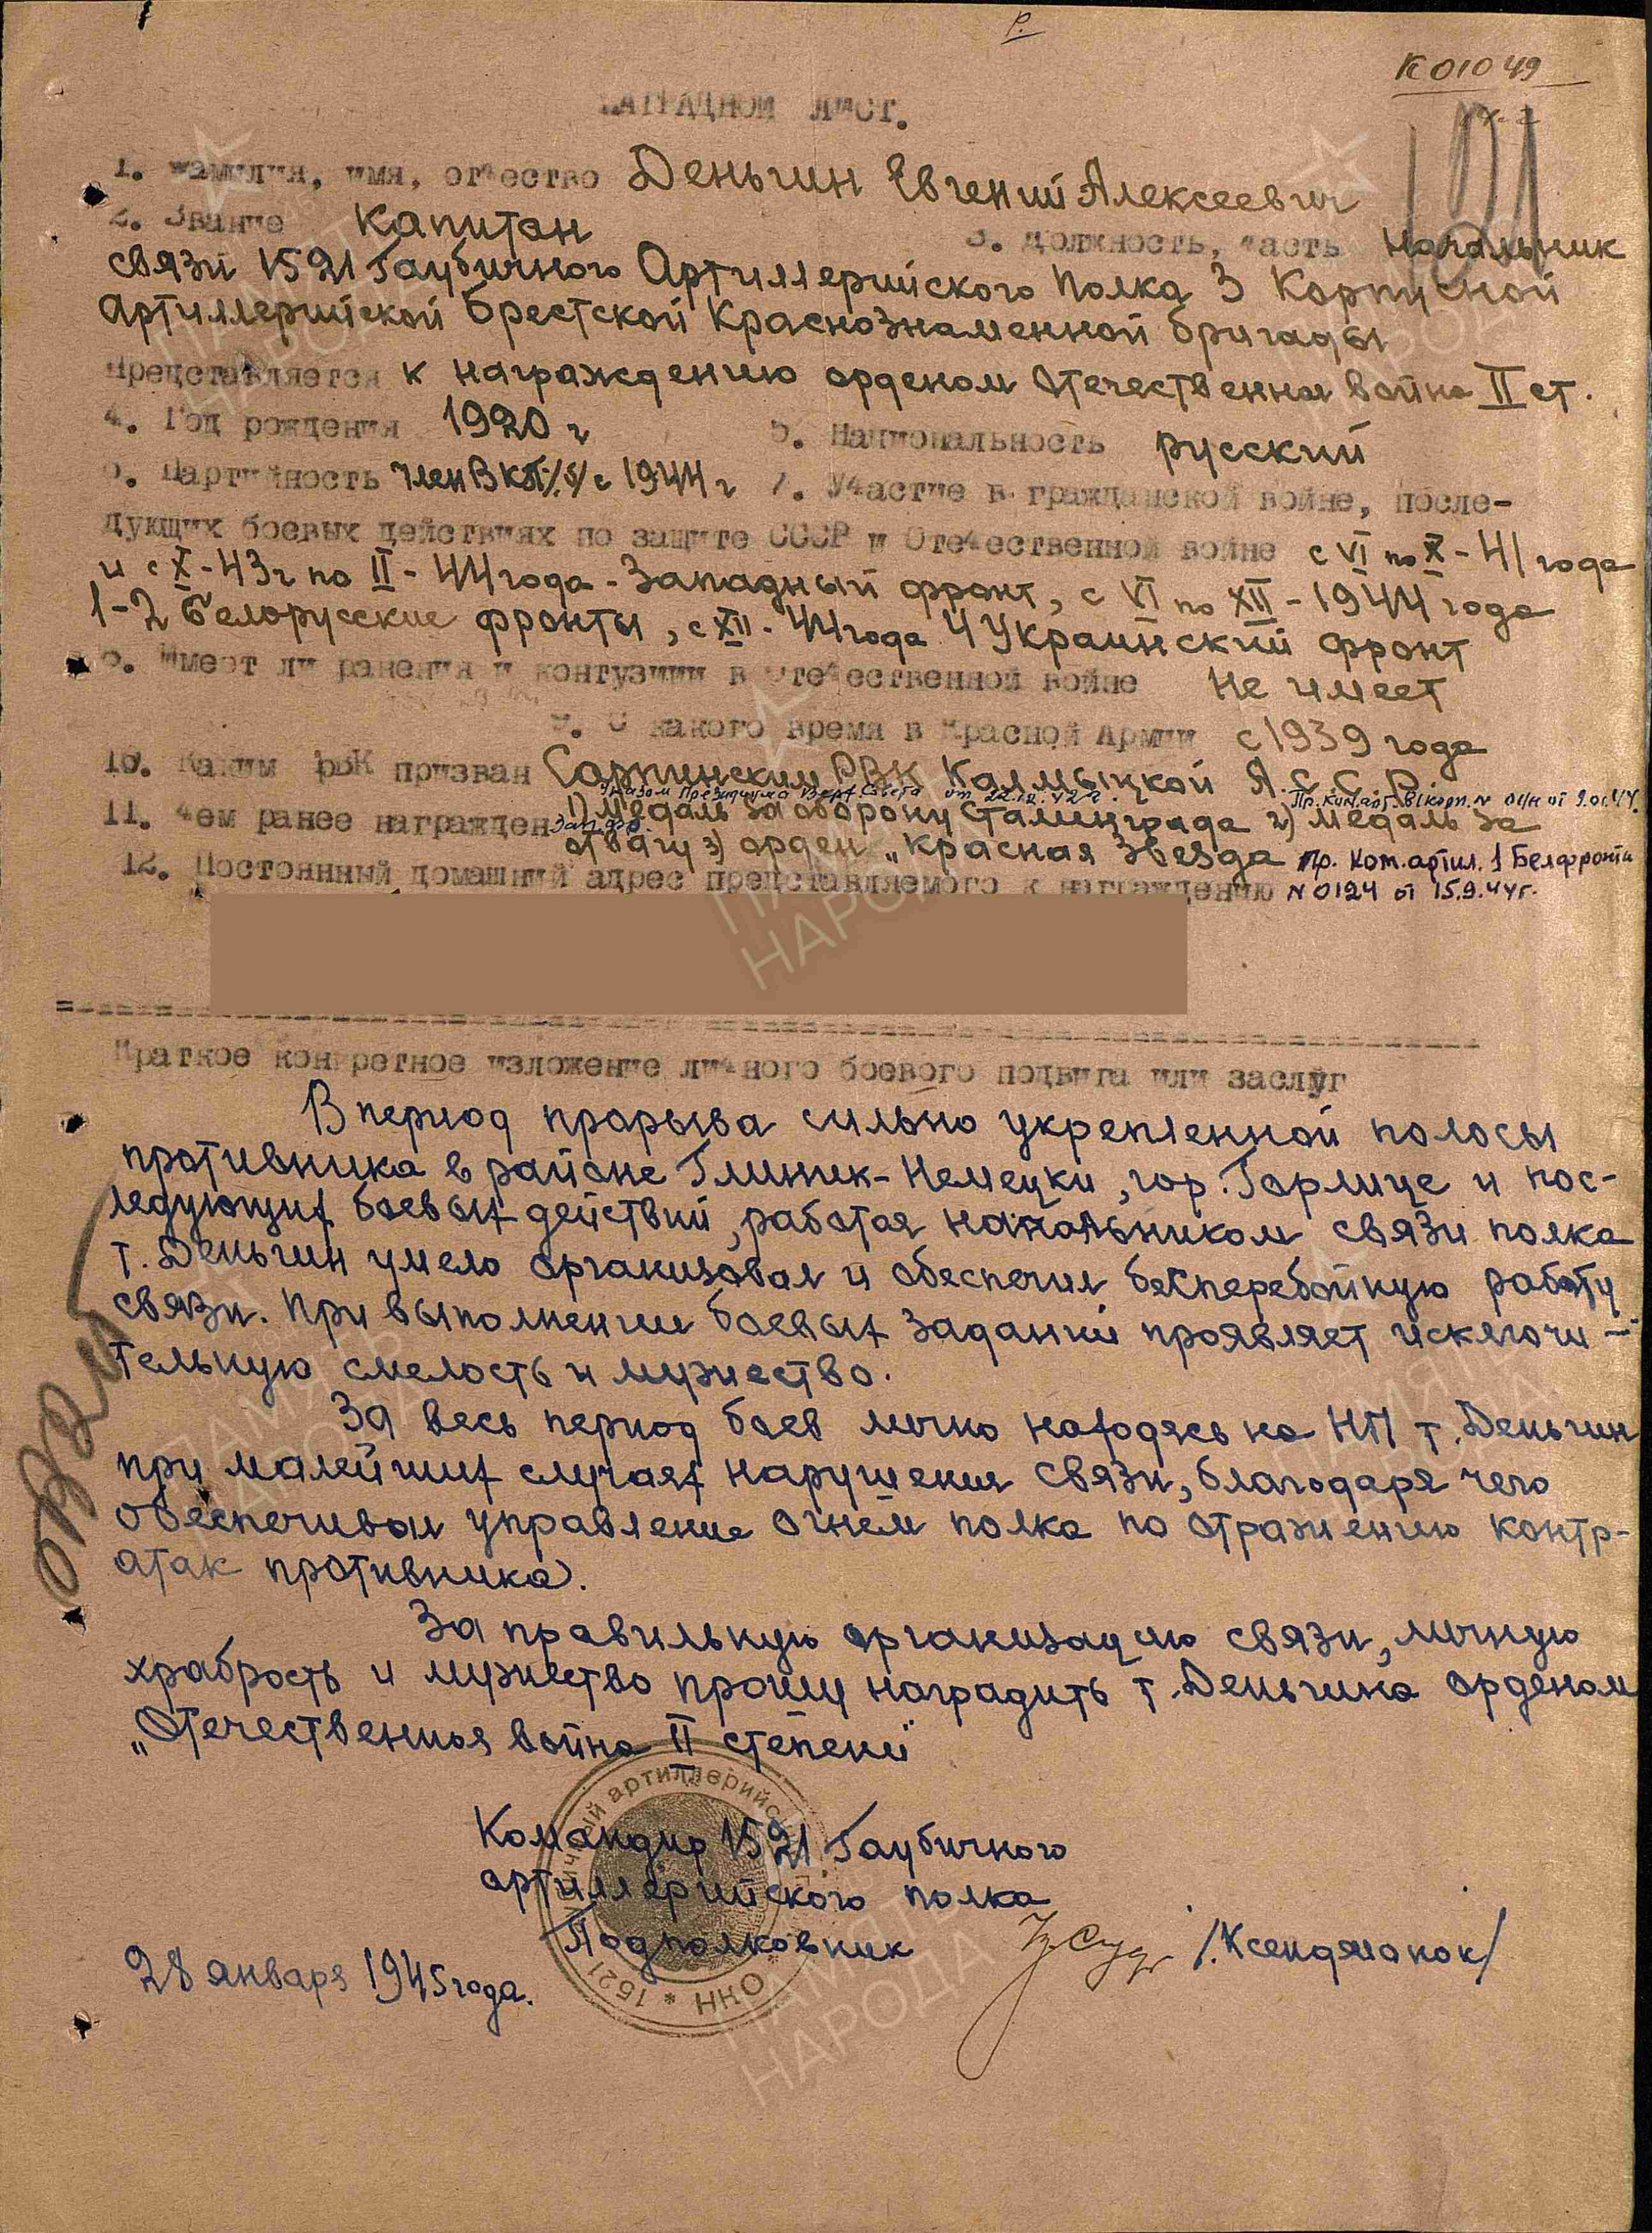 Р.
К 01049
НАГРАДНОЙ ЛИСТ.
1. Фамилия, имя, отчество Деньгин Евгений Алексеевич
2. Звание Капитан 3. Должность, часть Начальник
связи 1521 Гаубичного Артиллерийского Полка 3 Корпусной
Артиллерийской Брестской Краснознаменной бригады
Представляется к награждению орденом Отечественная война II ст.
4. Год рождения 1920 г 5. Национальность русский
6. Партийность член ВКП/б/ с 1944 г 7. Участие в гражданской войне, после-
дующих боевых действиях по защите СССР и Отечественной войне с VI по X - 41 года
и с X - 43 г по II - 44 года - Западный фронт, с VI по XII - 1944 года
1-2 Белорусские фронты, с XII - 44 года 4 Украинский фронт
8. Имеет ли ранения и контузии в Отечественной войне Не имеет
9. С какого время в Красной Армии с 1939 года
10. Каким РВК призван Сарпинским РВК Калмыцкой А.С.С.Р.
Указом Президиума Верх. Совета от 22.12.42 г. Пр. ком. арт. корп. N 01/н от 9.01.44.
11. Чем ранее награжден 1) Медаль за оборону Сталинграда 2) медаль за
отвагу 3) орден „Красная Звезда Пр. ком. артил. 1 Белфронта
12. Постоянный домашний адрес представляемого к награждению N 0124 от 15.9.44г.
Краткое конкретное изложение личного боевого подвига или заслуг
В период прорыва сильно укрепленной полосы
противника в районе Глиник-Немецки, гор. Горлице и пос-
ледующих боевых действий, работая начальником связи полка
т. Деньгин умело организовал и обеспечил бесперебойную работу
связи. При выполнении боевых заданий проявляет исключи-
тельную смелость и мужество.
За весь период боев лично находясь на НП т. Деньгин
при малейших случаях нарушения связи, благодаря чего
обеспечивал управление огнем полка по отражению контр-
атак противника.
За правильную организацию связи, личную
храбрость и мужество прошу наградить т. Деньгина орденом
„Отечественная война II степени"
Командир 1521 Гаубичного
артиллерийского полка
Подполковник
28 января 1945 года.
ПАМЯТЬ НАРОДА